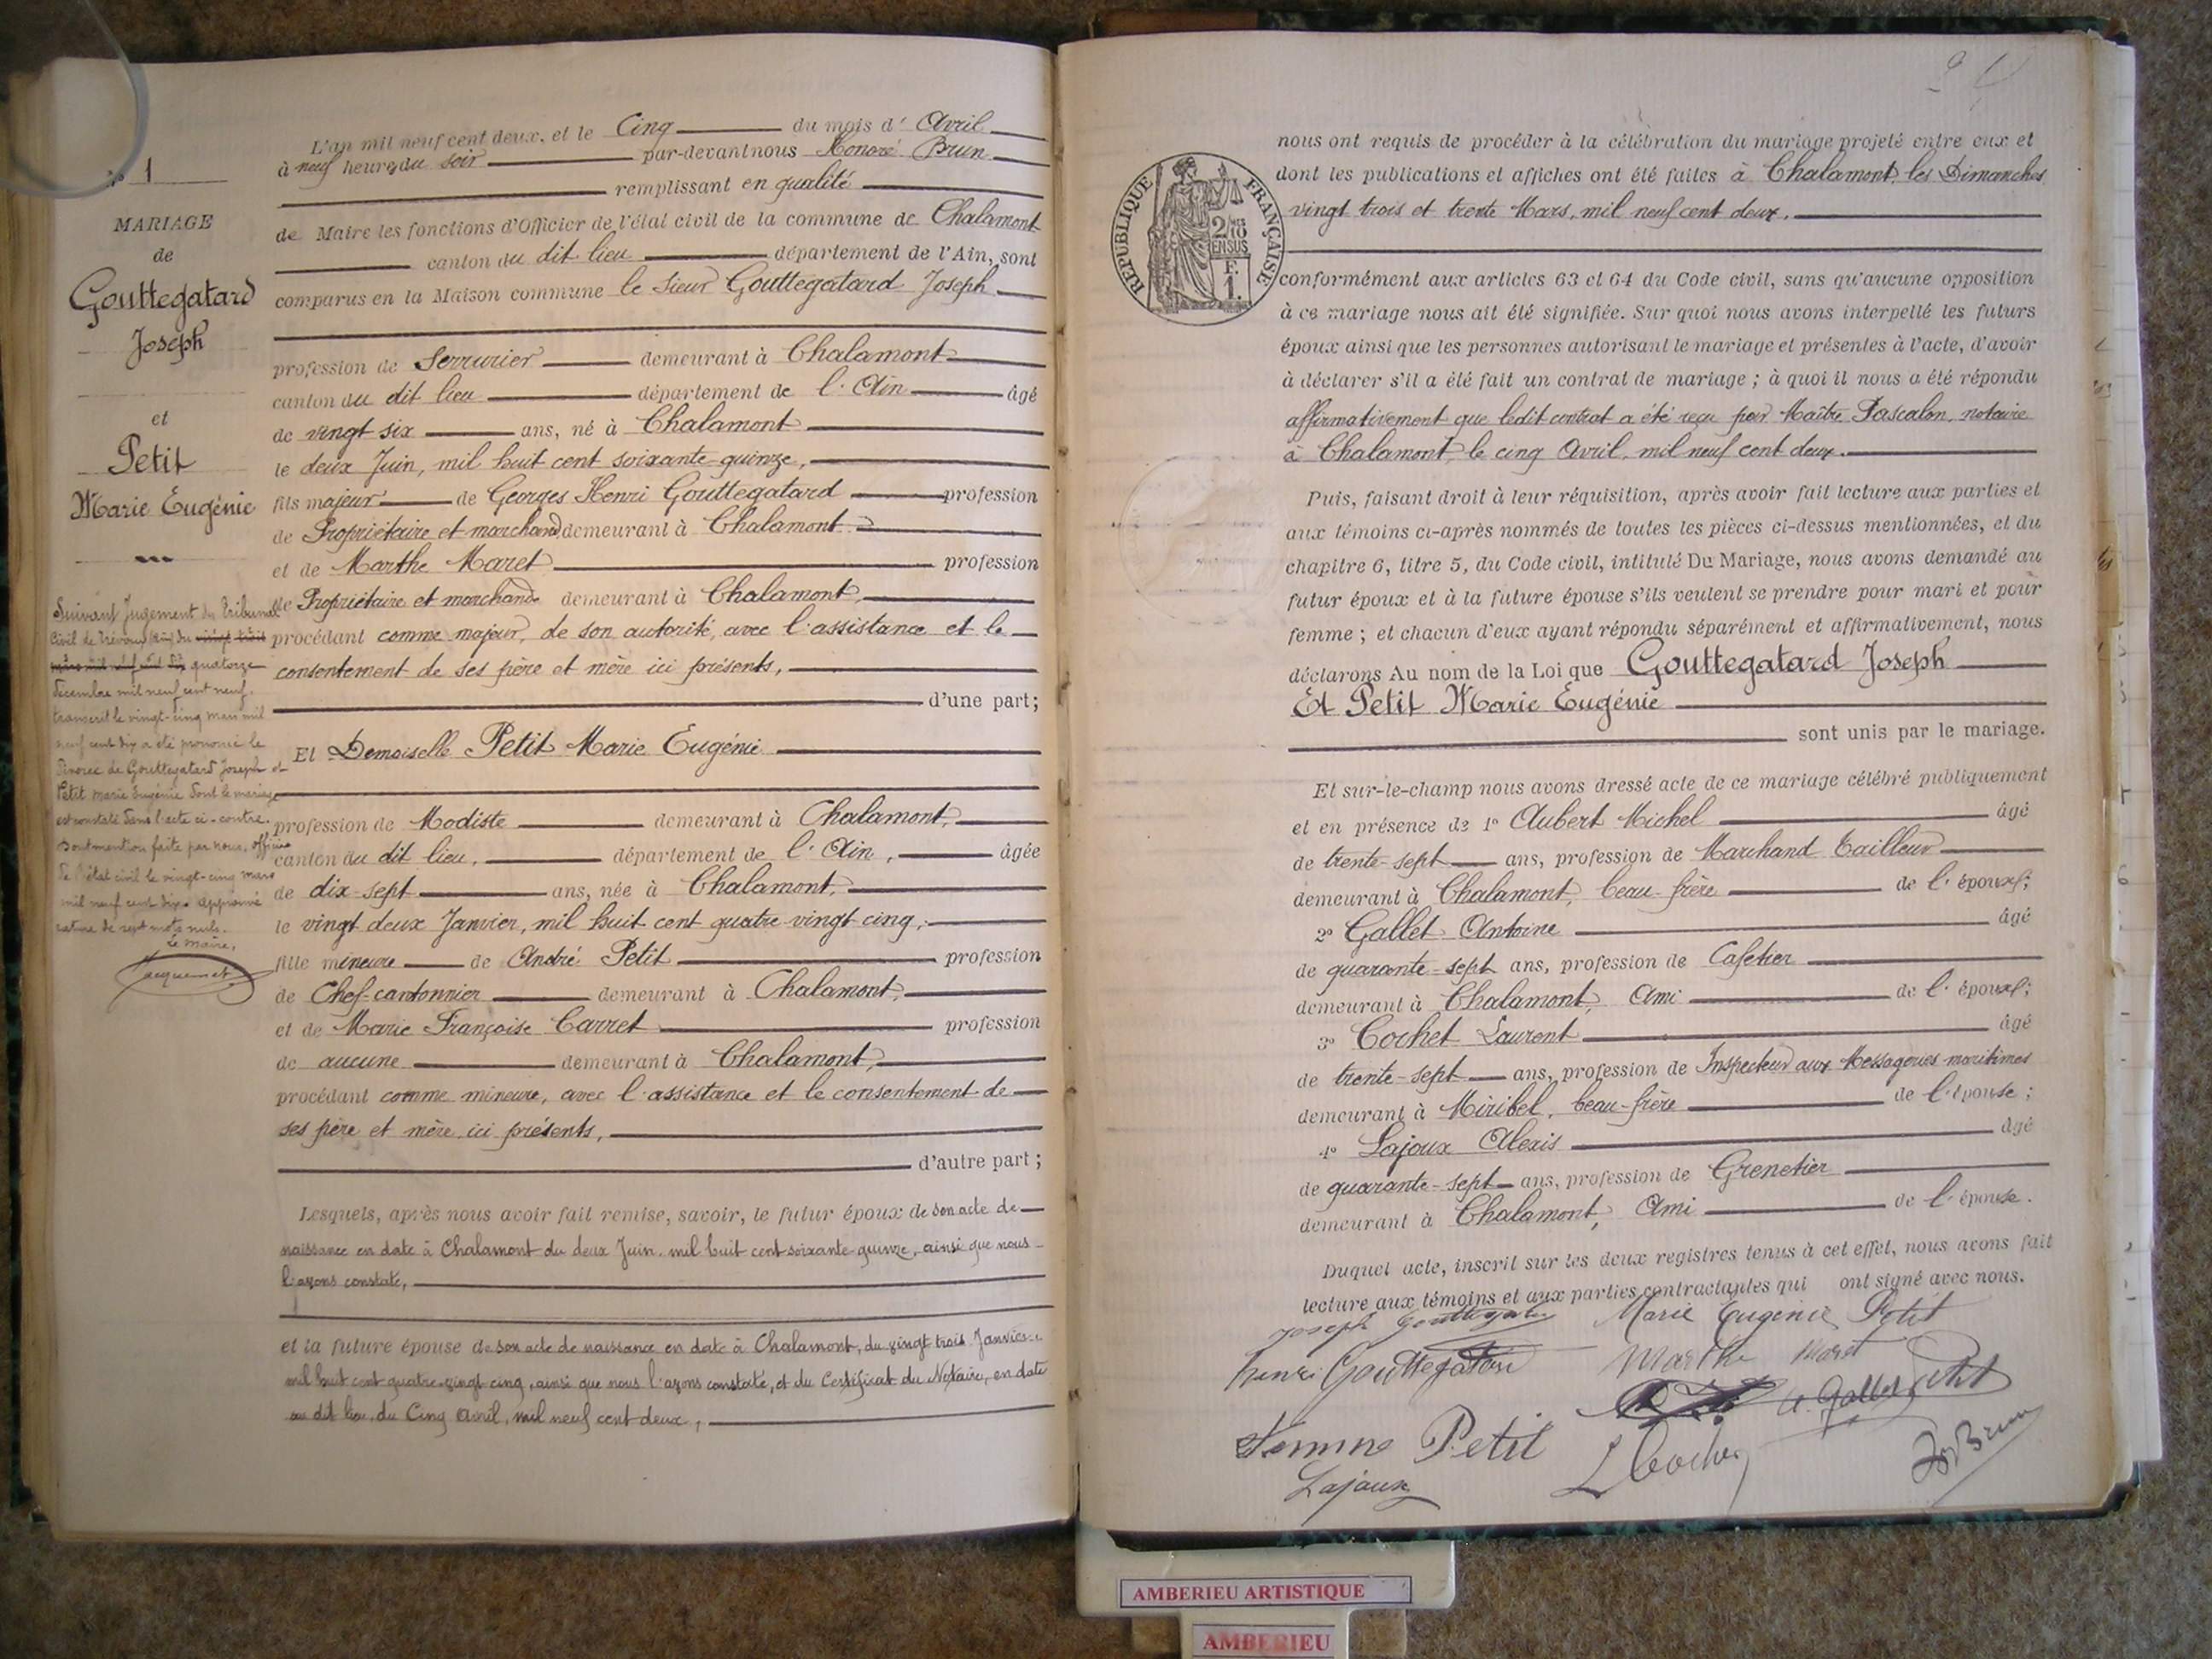 N° 1
MARIAGE
de
Gouttegatard
Joseph
et
Petit
Marie Eugénie
Suivant Jugement du Tribunal
Civil de Trévoux (Ain) du vingt trois
mars mil neuf cent dix quatorze
Décembre mil neuf cent neuf.
transcrit le vingt-cinq mars mil
neuf cent dix a été prononcé le
Divorce de Gouttegatard Joseph et
Petit Marie Eugénie dont le mariage
est constaté dans l'acte ci-contre.
Dont mention faite par nous, officier
de l'état civil le vingt-cinq mars
mil neuf cent dix. approuvé
rature de sept mots nuls.
Le Maire,
Jacquemet
L'an mil neuf cent deux, et le Cinq du mois d' Avril
à neuf heures du soir par-devant nous Honoré Brun
remplissant en qualité
de Maire les fonctions d'Officier de l'état civil de la commune de Chalamont
canton du dit lieu département de l'Ain, sont
comparus en la Maison commune le Sieur Gouttegatard Joseph
profession de Serrurier demeurant à Chalamont
canton du dit lieu département de l'Ain âgé
de vingt six ans, né à Chalamont
le deux Juin, mil huit cent soixante-quinze,
fils majeur de Georges Henri Gouttegatard profession
de Propriétaire et marchand demeurant à Chalamont
et de Marthe Maret profession
de Propriétaire et marchande demeurant à Chalamont,
procédant comme majeur, de son autorité, avec l'assistance et le
consentement de ses père et mère ici présents,
d'une part;
Et Demoiselle Petit Marie Eugénie
profession de Modiste demeurant à Chalamont,
canton du dit lieu, département de l'Ain, âgée
de dix-sept ans, née à Chalamont,
le vingt deux Janvier, mil huit cent quatre vingt cinq,
fille mineure de André Petit profession
de Chef-cantonnier demeurant à Chalamont,
et de Marie Françoise Carret profession
de aucune demeurant à Chalamont,
procédant comme mineure, avec l'assistance et le consentement de
ses père et mère, ici présents,
d'autre part;
Lesquels, après nous avoir fait remise, savoir, le futur époux de son acte de
naissance en date à Chalamont du deux Juin, mil huit cent soixante quinze, ainsi que nous
l'avons constaté,
et la future épouse de son acte de naissance en date à Chalamont, du vingt trois Janvier
mil huit cent quatre-vingt cinq, ainsi que nous l'avons constaté, et du Certificat du Notaire, en date
au dit lieu, du Cinq Avril, mil neuf cent deux,
nous ont requis de procéder à la célébration du mariage projeté entre eux et
dont les publications et affiches ont été faites à Chalamont, les Dimanches
vingt trois et trente Mars, mil neuf cent deux.
RÉPUBLIQUE FRANÇAISE
2/10
EN SUS
F.
1.
conformément aux articles 63 et 64 du Code civil, sans qu'aucune opposition
à ce mariage nous ait été signifiée. Sur quoi nous avons interpellé les futurs
époux ainsi que les personnes autorisant le mariage et présentes à l'acte, d'avoir
à déclarer s'il a été fait un contrat de mariage ; à quoi il nous a été répondu
affirmativement que ledit contrat a été reçu par Maître Pascalon, notaire
à Chalamont, le cinq Avril, mil neuf cent deux.
Puis, faisant droit à leur réquisition, après avoir fait lecture aux parties et
aux témoins ci-après nommés de toutes les pièces ci-dessus mentionnées, et du
chapitre 6, titre 5, du Code civil, intitulé Du Mariage, nous avons demandé au
futur époux et à la future épouse s'ils veulent se prendre pour mari et pour
femme ; et chacun d'eux ayant répondu séparément et affirmativement, nous
déclarons Au nom de la Loi que Gouttegatard Joseph
Et Petit Marie Eugénie
sont unis par le mariage.
Et sur-le-champ nous avons dressé acte de ce mariage célébré publiquement
et en présence de 1° Aubert Michel âgé
de trente-sept ans, profession de Marchand Tailleur
demeurant à Chalamont, beau-frère de l'époux;
2° Gallet Antoine âgé
de quarante-sept ans, profession de Cafetier
demeurant à Chalamont, Ami de l'époux;
3° Cochet Laurent âgé
de trente-sept ans, profession de Inspecteur aux Messageries maritimes
demeurant à Miribel, beau-frère de l'épouse;
4° Lajoux Alexis âgé
de quarante-sept ans, profession de Grenetier
demeurant à Chalamont, Ami de l'épouse.
Duquel acte, inscrit sur les deux registres tenus à cet effet, nous avons fait
lecture aux témoins et aux parties contractantes qui ont signé avec nous.
Joseph Gouttegatard Marie Eugénie Petit
Henri Gouttegatard Marthe Maret
A. Gallet Petit
Femme Petit L Cochet Hré Brun
Lajoux
AMBERIEU ARTISTIQUE
AMBERIEU